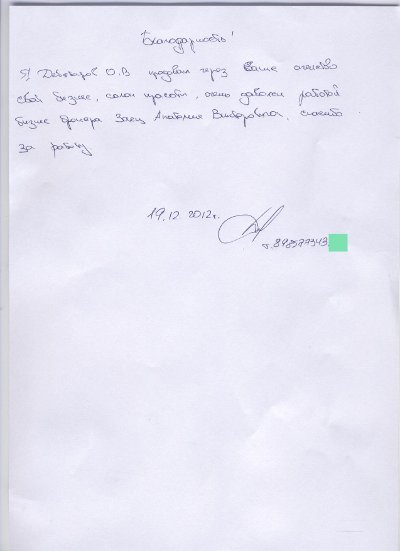 Благодарность!
Я О.В продавал через Ваше агенство
свой бизнес, салон красоты, очень доволен работой
бизнес брокера Заец Анатолия Викторовича, спасибо
за работу
19.12 2012г.